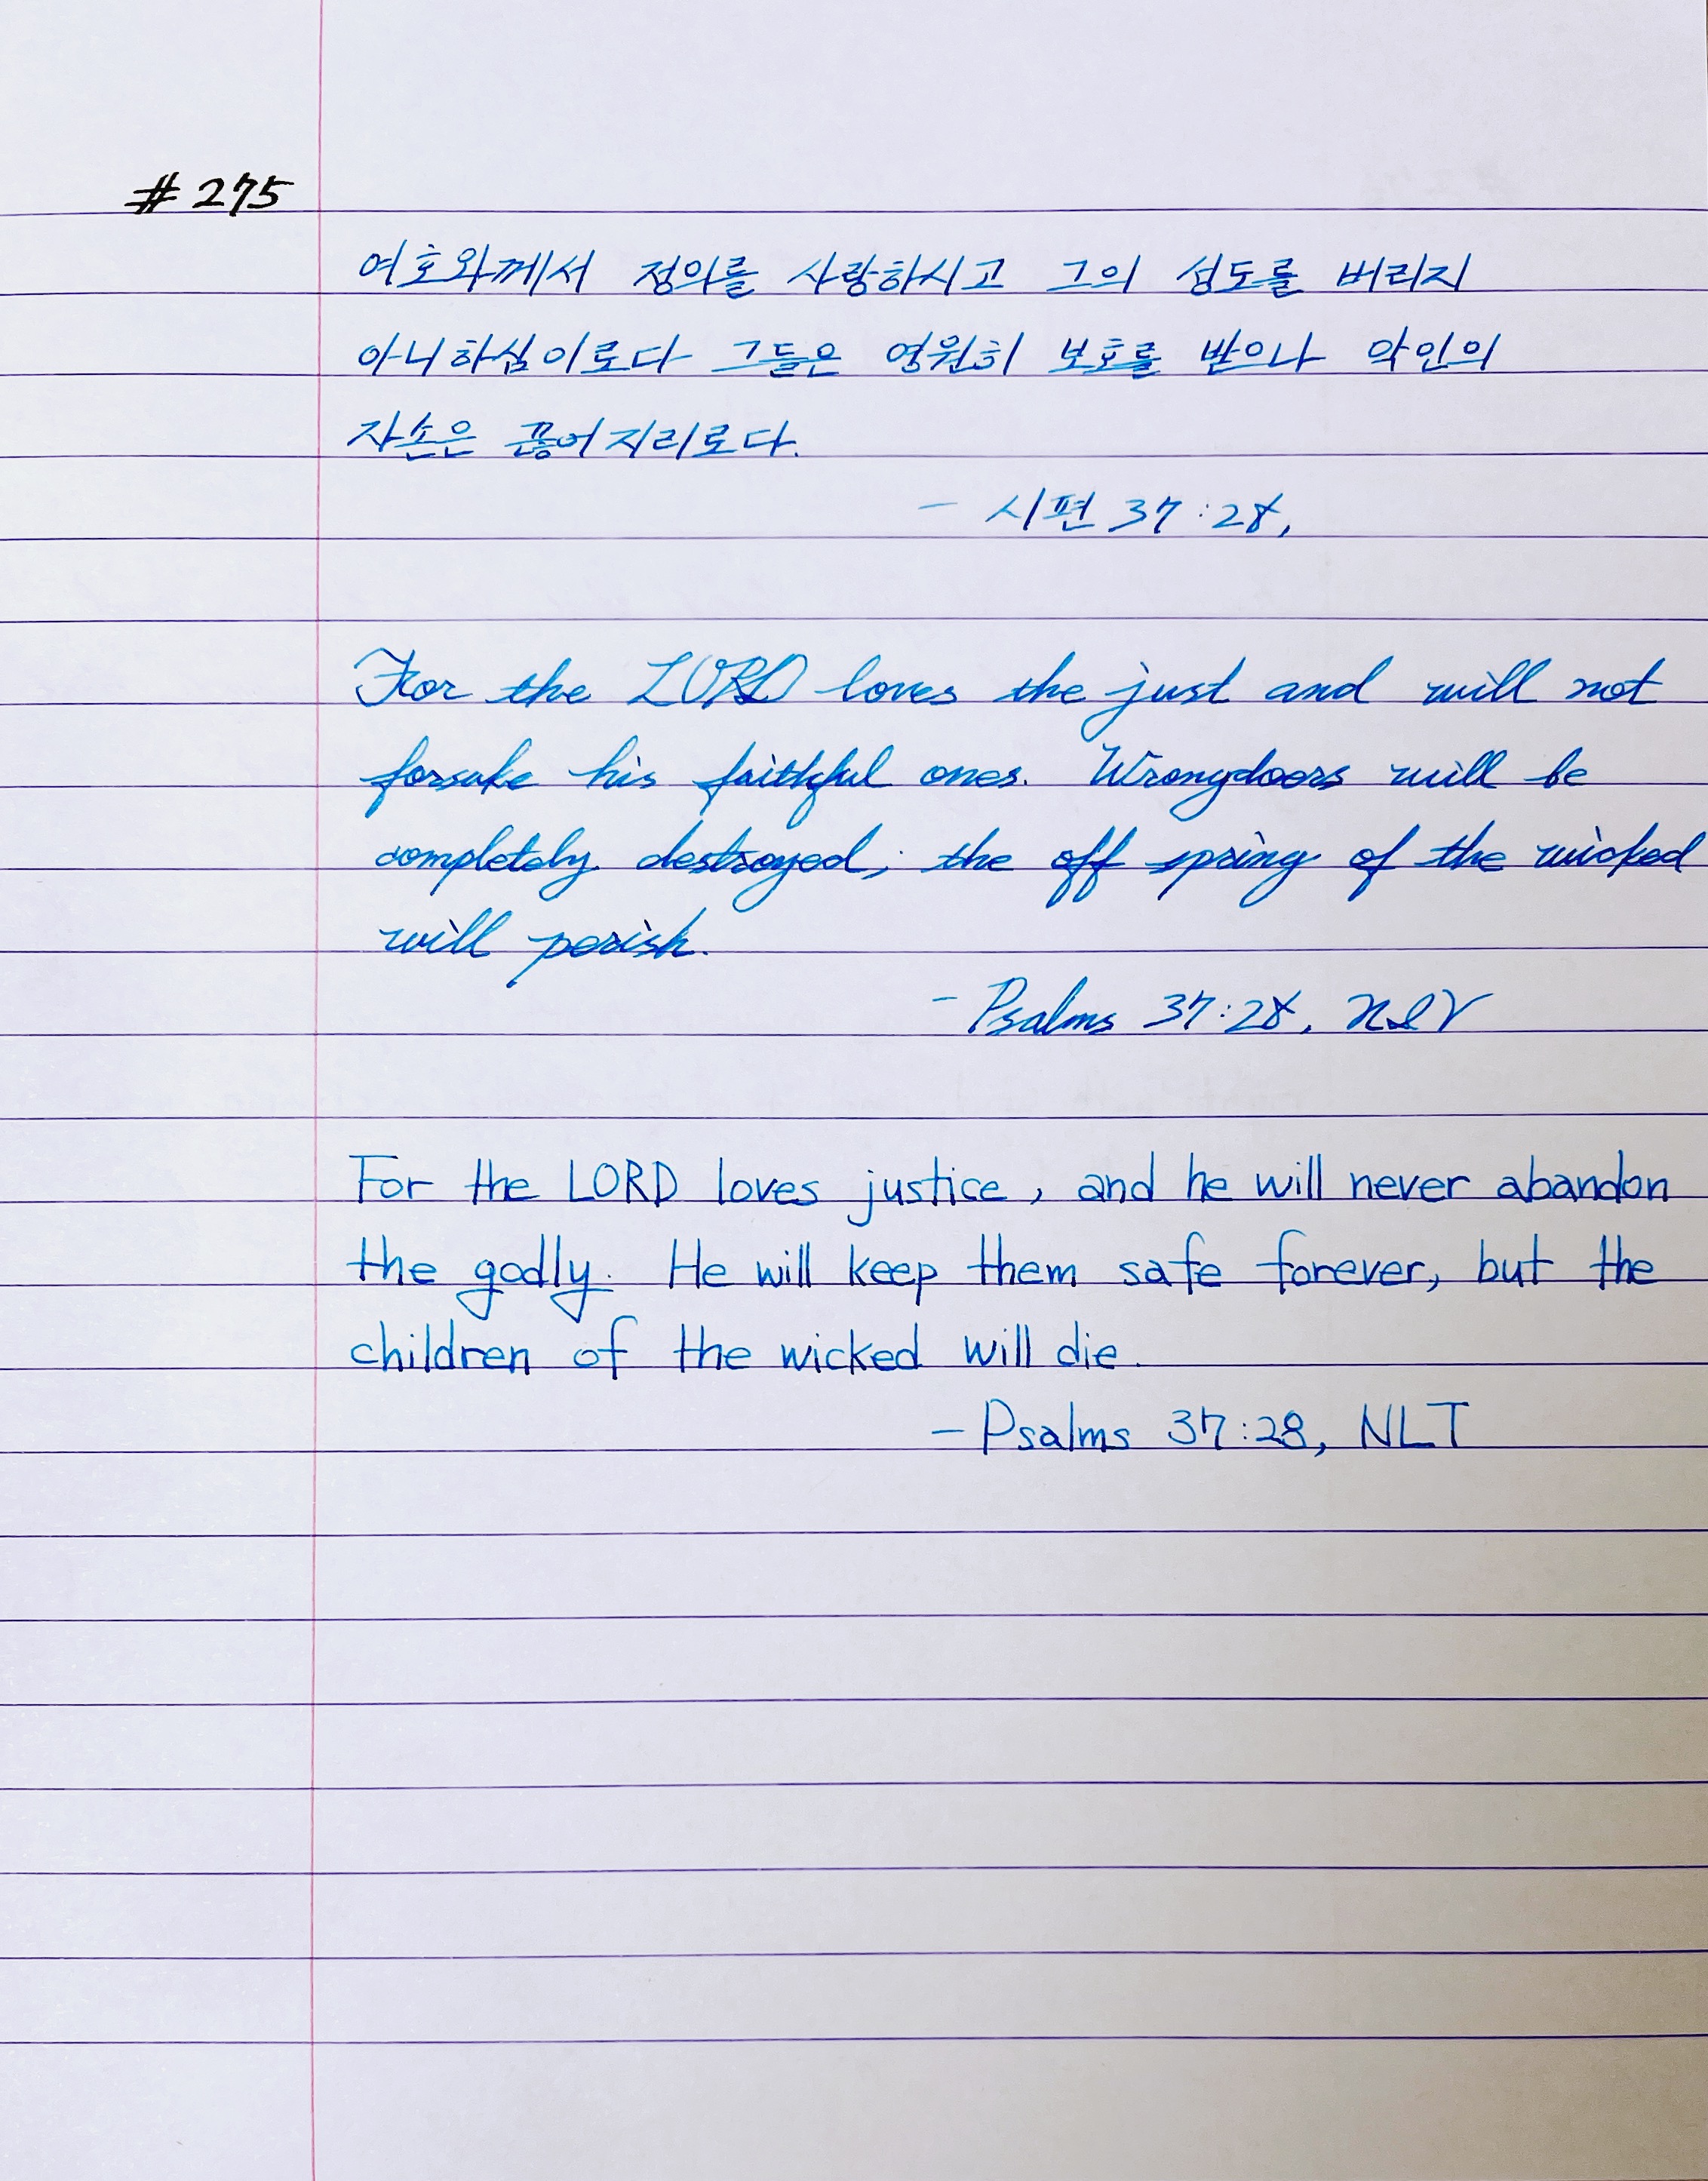 #275
여호와께서 정의를 사랑하시고 그의 성도를 버리지
아니하심이로다 그들은 영원히 보호를 받으나 악인의
자손은 끊어지리로다.
- 시편 37:28,
For the LORD loves the just and will not
forsake his faithful ones. Wrongdoers will be
completely destroyed; the off spring of the wicked
will perish.
- Psalms 37:28, NIV
For the LORD loves justice, and he will never abandon
the godly. He will keep them safe forever, but the
children of the wicked will die.
- Psalms 37:28, NLT